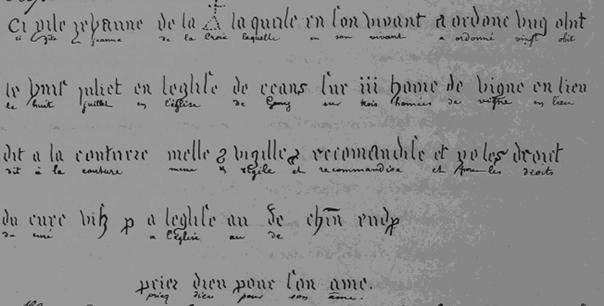 Ci gite jehanne de la laquele en son vivant a ordone ung obit
ci gite jeanne de la Croix laquelle en son vivant a ordonné vingt obit
le huis juliet en leglise de ceans sur iii home de vigne en lieu
le huit juillet en l'église de sur trois homées de vigne en lieu
dit a la couture messe vigille recomandise et po les drouit
dit à la couture messe vigile et recommandise et pour les droits
du cure a leglise au de
du curé à l'Eglise au de
priez dieu pour son ame.
priez dieu pour son âme.